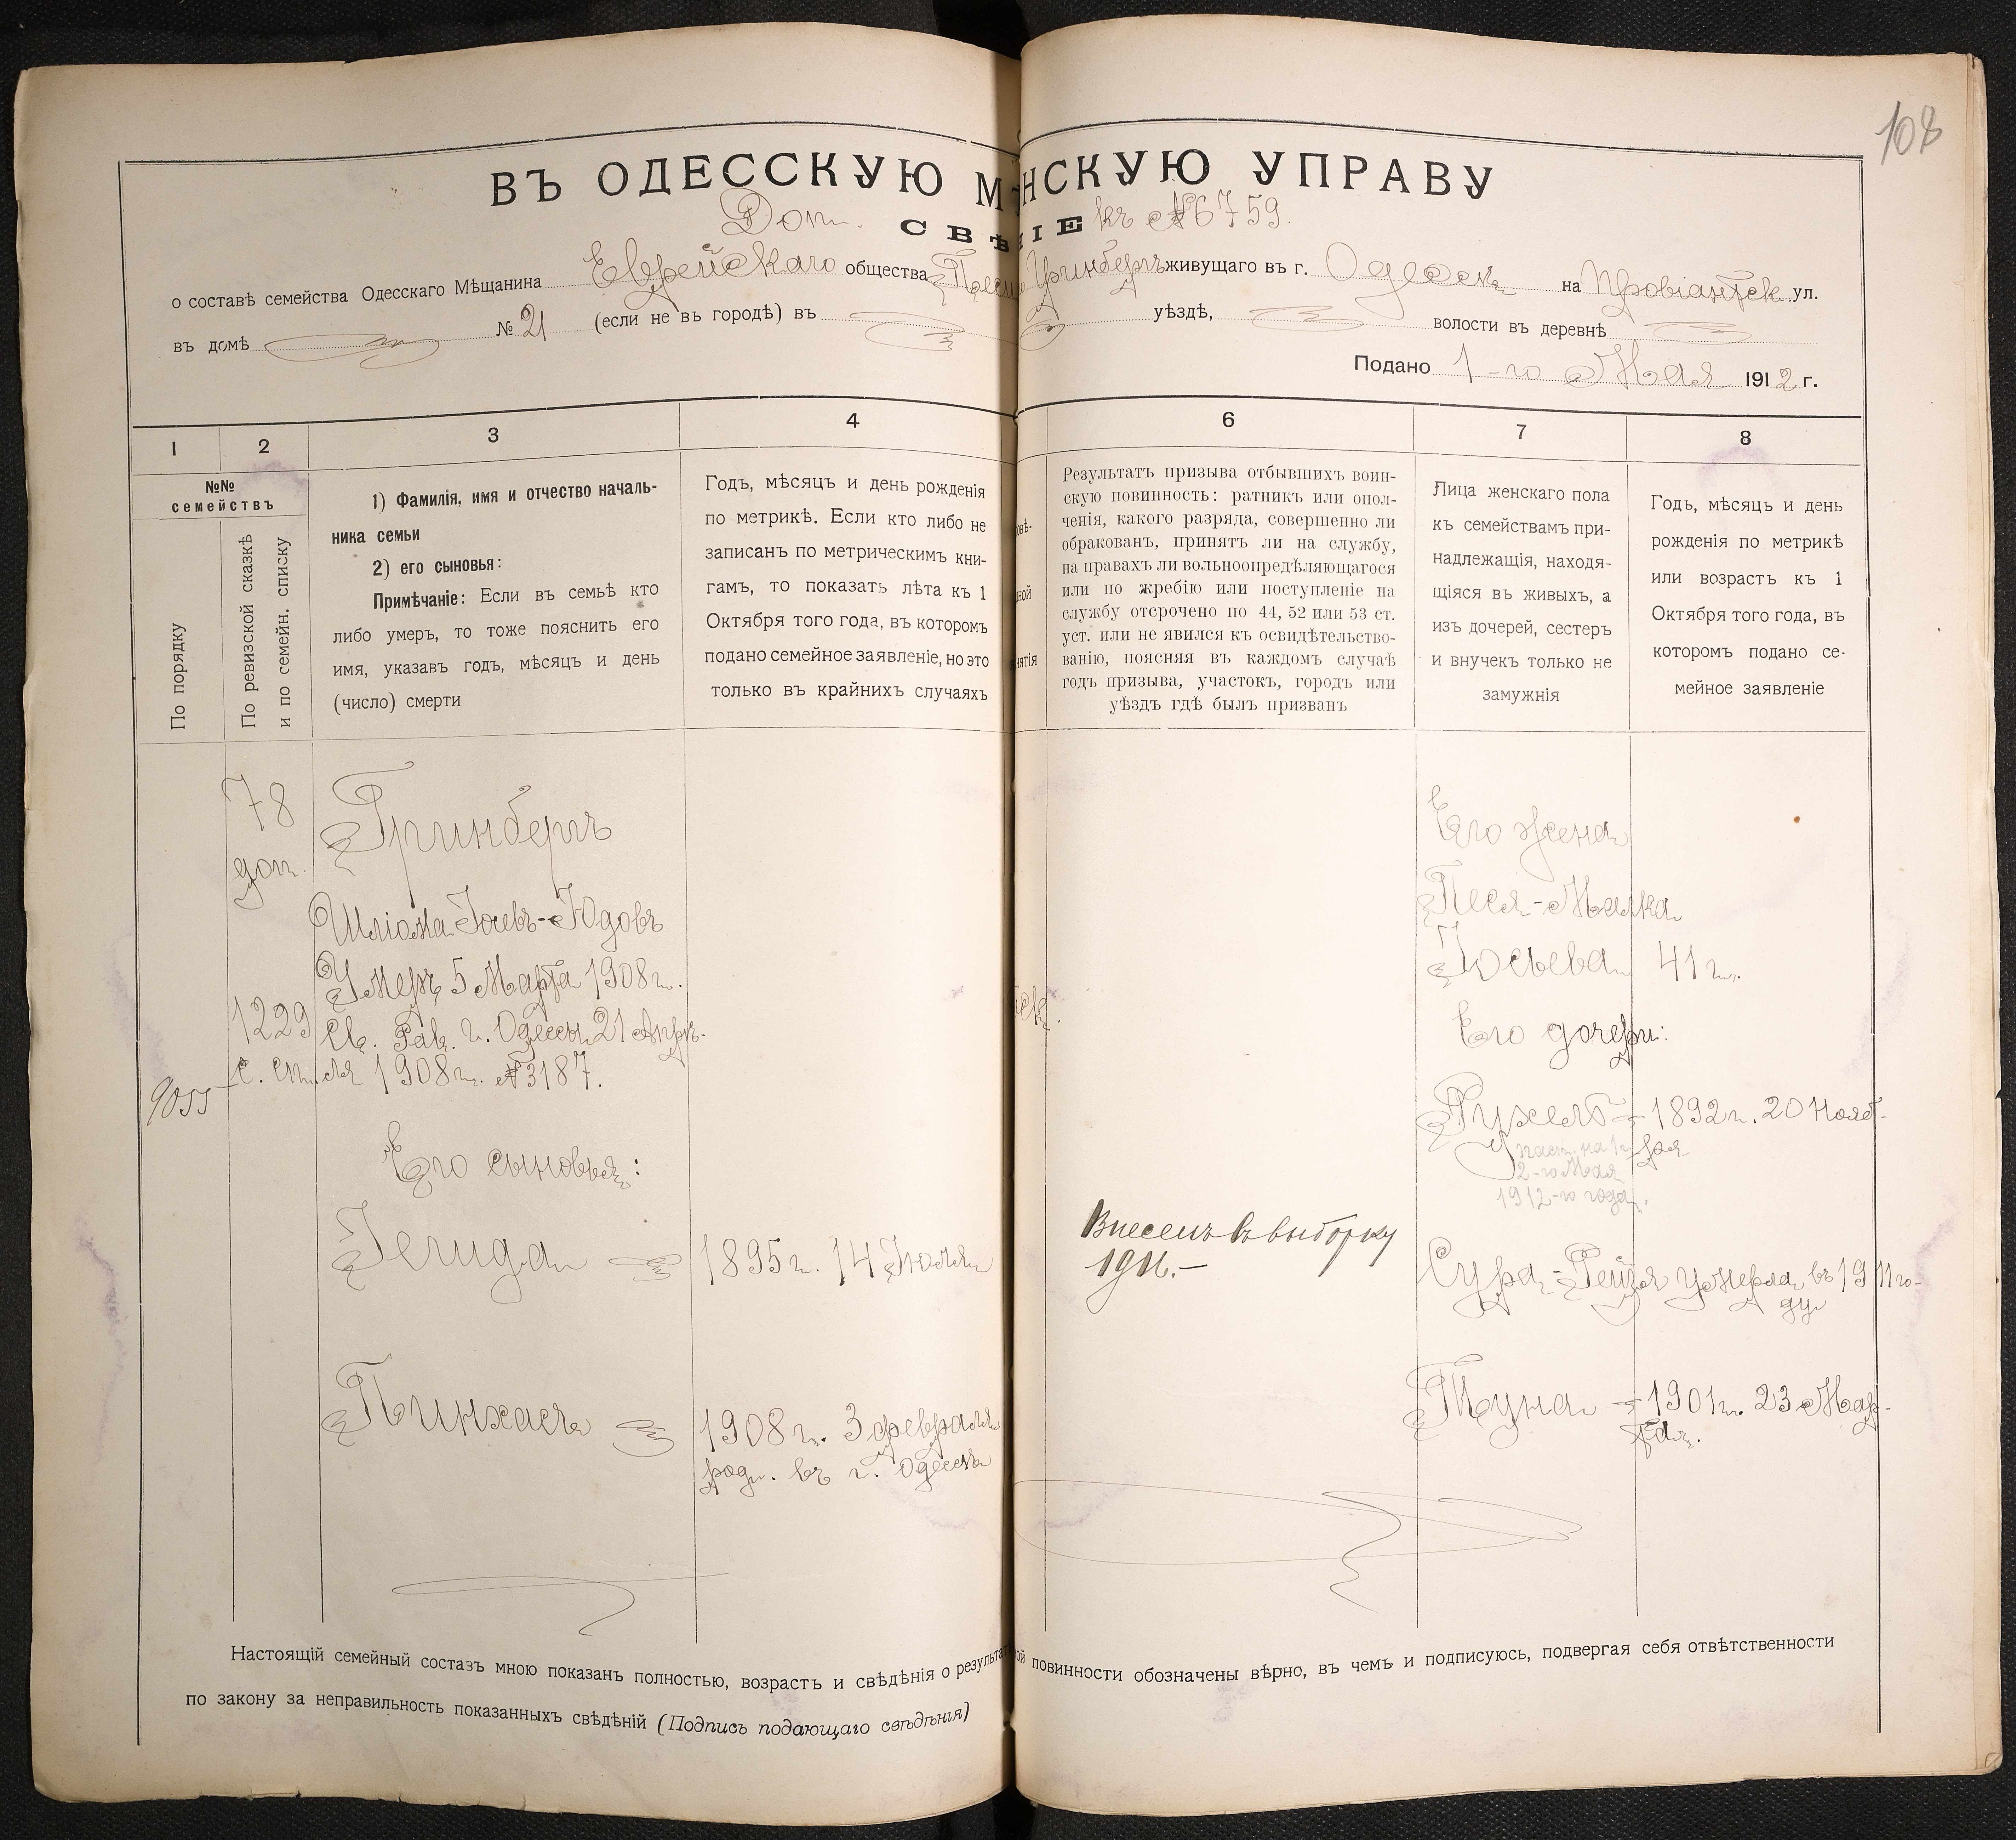 108
ВЪ ОДЕССКУЮ М НСКУЮ УПРАВУ
Доп. СВѢ НІЕ къ №6759.
о составѣ семейства Одесскаго Мѣщанина Еврейскаго общества Песи Гринбергъ живущаго въ г. Одессѣ на Провіантск ул.
въ домѣ № 21 (если не въ городѣ) въ уѣздѣ, волости въ деревнѣ
Подано 1-го Мая 1912 г.
1 2 3 4 6 7 8
№№
семействъ
По порядку
По ревизской сказкѣ
и по семейн. списку
1) Фамилія, имя и отчество началь-
ника семьи
2) его сыновья:
Примѣчаніе: Если въ семьѣ кто
либо умеръ, то тоже пояснить его
имя, указавъ годъ, мѣсяцъ и день
(число) смерти
Годъ, мѣсяцъ и день рожденія
по метрикѣ. Если кто либо не
записанъ по метрическимъ кни-
гамъ, то показать лѣта къ 1
Октября того года, въ которомъ
подано семейное заявленіе, но это
только въ крайнихъ случаяхъ
Результатъ призыва отбывшихъ воин-
скую повинность: ратникъ или опол-
ченія, какого разряда, совершенно ли
обракованъ, принятъ ли на службу,
на правахъ ли вольноопредѣляющагося
или по жребію или поступленіе на
службу отсрочено по 44, 52 или 53 ст.
уст. или не явился къ освидѣтельство-
ванію, поясняя въ каждомъ случаѣ
годъ призыва, участокъ, городъ или
уѣздъ гдѣ былъ призванъ
Лица женскаго пола
къ семействамъ при-
надлежащія, находя-
щіяся въ живыхъ, а
изъ дочерей, сестеръ
и внучекъ только не
замужнія
Годъ, мѣсяцъ и день
рожденія по метрикѣ
или возрастъ къ 1
Октября того года, въ
которомъ подано се-
мейное заявленіе
78
доп.
1229
с. сп.
9055
Гринбергъ
Шліома Іосевъ-Юдовъ
Умеръ 5 Марта 1908 г.
Св. Рав. г. Одессы 21 Апрѣ-
ля 1908 г. №3187.
Его сыновья:
Іегуда 1895 г. 14 Іюля
Пинхасъ 1908 г. 3 февраля
род. въ г. Одессѣ
Внесенъ въ выборку
1916.-
Его жена
Песя-Малка
Іосьева 41 г.
Его дочери:
Рухель - 1892 г. 20 Нояб-
ря
2-го Мая
1912-го года.
Сура-Рейзя умерла въ 1911 го-
ду
Туна - 1901 г. 23 Мар-
та.
Настоящій семейный составъ мною показанъ полностью, возрастъ и свѣдѣнія о результат ой повинности обозначены вѣрно, въ чемъ и подписуюсь, подвергая себя отвѣтственности
по закону за неправильность показанныхъ свѣдѣній (Подпись подающаго свѣдѣнія)